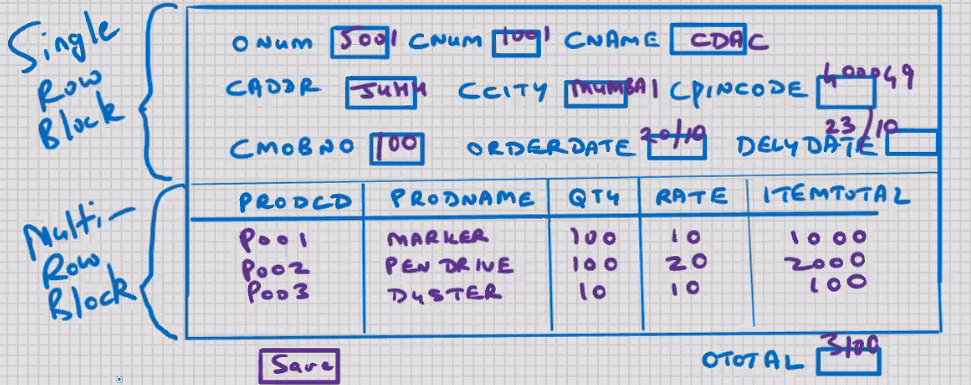 Single Row Block
ONUM 5001 CNUM 1001 CNAME CDAC
CADDR JUHU CCITY MUMBAI CPINCODE 400049
CMOBNO 100 ORDERDATE 20/10 DELYDATE 23/10
Multi-Row Block
PRODCD PRODNAME QTY RATE ITEMTOTAL
P001 MARKER 100 10 1000
P002 PEN DRIVE 100 20 2000
P003 DUSTER 10 10 100
Save OTOTAL 3100